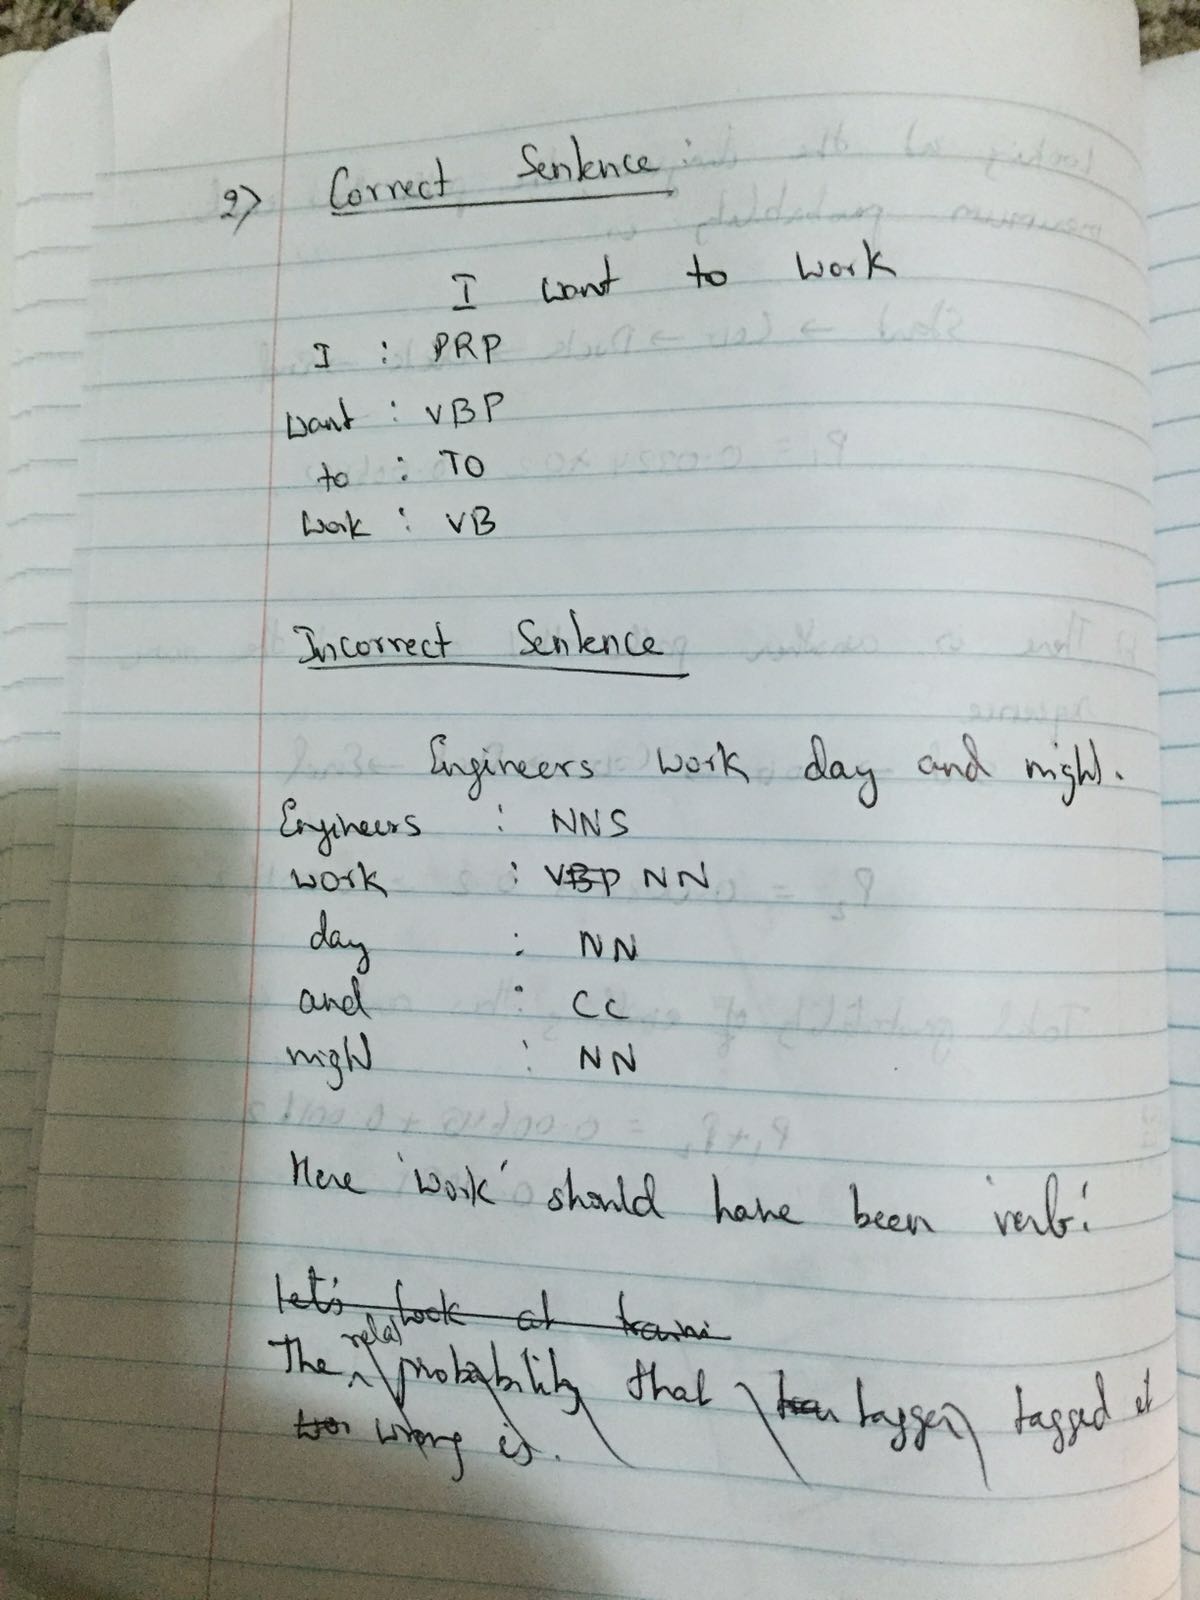 2) Correct Sentence
I want to work
I : PRP
want : VBP
to : TO
work : VB
Incorrect Sentence
Engineers work day and night.
Engineers : NNS
work : VBP NN
day : NN
and : CC
night : NN
Here 'work' should have been 'verb'.
let's look at traini
The relat probability that tagger tagged it
wrong is.